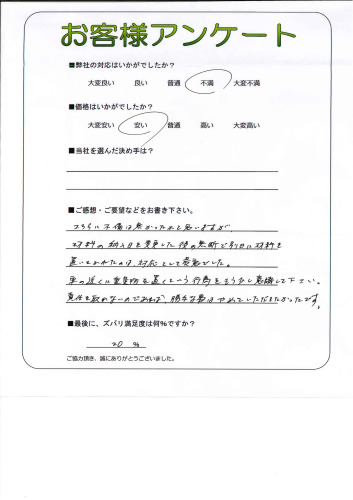 お客様アンケート
■弊社の対応はいかがでしたか?
大変良い 良い 普通 不満 大変不満
■価格はいかがでしたか?
大変安い 安い 普通 高い 大変高い
■当社を選んだ決め手は?
■ご感想・ご要望などをお書き下さい。
こちらに不備は無かったと思いますが、
材料の納入日を変更した後の無断で別日に材料を
置いていかれたのは、対応として最悪でした。
車の近くに重量物を置くという行為をもう少し意識して下さい。
責任を取れないのであれば、勝手な事はやめていただきたかったです。
■最後に、ズバリ満足度は何%ですか?
20 %
ご協力頂き、誠にありがとうございました。